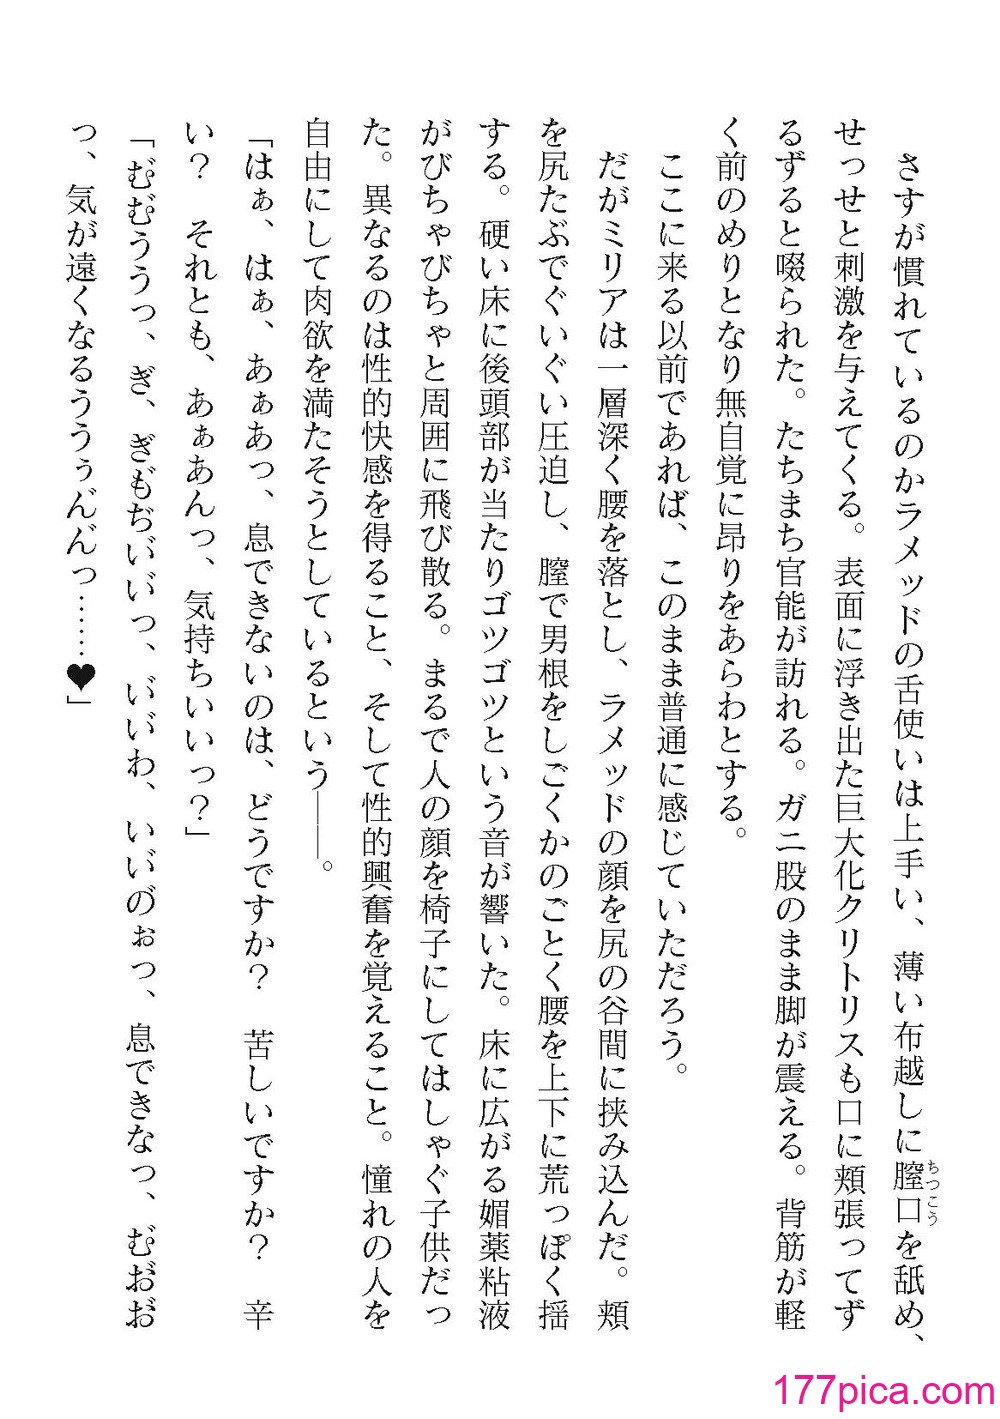 さすが慣れているのかラメッドの舌使いは上手い、薄い布越しに膣口を舐め、
ちつこう
せっせと刺激を与えてくる。表面に浮き出た巨大化クリトリスも口に頬張ってず
るずると啜られた。たちまち官能が訪れる。ガニ股のまま脚が震える。背筋が軽
く前のめりとなり無自覚に昂りをあらわとする。
ここに来る以前であれば、このまま普通に感じていただろう。
だがミリアは一層深く腰を落とし、ラメッドの顔を尻の谷間に挟み込んだ。頬
を尻たぶでぐいぐい圧迫し、膣で男根をしごくかのごとく腰を上下に荒っぽく揺
する。硬い床に後頭部が当たりゴツゴツという音が響いた。床に広がる媚薬粘液
がびちゃびちゃと周囲に飛び散る。まるで人の顔を椅子にしてはしゃぐ子供だっ
た。異なるのは性的快感を得ること、そして性的興奮を覚えること。憧れの人を
自由にして肉欲を満たそうとしているという――。
「はぁ、はぁ、あぁあっ、息できないのは、どうですか？　苦しいですか？　辛
い？　それとも、あぁあんっ、気持ちいいっ？」
「む゛む゛ううっ、ぎ、ぎも゛ぢい゛い゛っ、い゛い゛わ、い゛い゛のぉっ、息できなっ、む゛お゛お゛
っ、気が遠くなるううぅん゛ん゛っ……♥」
177pica.com